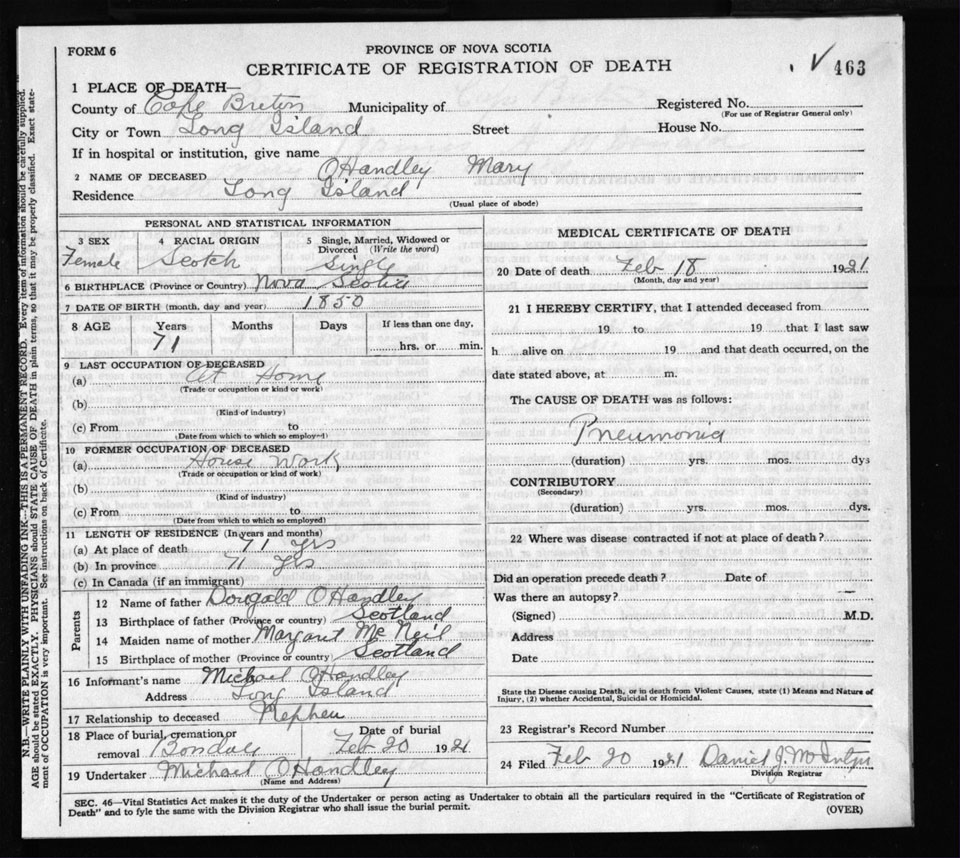 FORM 6
PROVINCE OF NOVA SCOTIA
CERTIFICATE OF REGISTRATION OF DEATH
✓ 463
1 PLACE OF DEATH—
County of Cape Breton Municipality of Registered No.
(For use of Registrar General only)
City or Town Long Island Street House No.
If in hospital or institution, give name
2 NAME OF DECEASED O'Handley Mary
Residence Long Island
(Usual place of abode)
PERSONAL AND STATISTICAL INFORMATION
3 SEX 4 RACIAL ORIGIN 5 Single, Married, Widowed or Divorced (Write the word)
Female Scotch Single
6 BIRTHPLACE (Province or Country) Nova Scotia
7 DATE OF BIRTH (month, day and year) 1850
8 AGE Years Months Days If less than one day,
71 hrs. or min.
9 LAST OCCUPATION OF DECEASED
(a) At Home
(Trade or occupation or kind or work)
(b)
(Kind of industry)
(c) From to
(Date from which to which so employed)
10 FORMER OCCUPATION OF DECEASED
(a) House Work
(Trade or occupation or kind of work)
(b)
(Kind of industry)
(c) From to
(Date from which to which so employed)
11 LENGTH OF RESIDENCE (In years and months)
(a) At place of death 71 yrs
(b) In province 71 yrs
(c) In Canada (if an immigrant)
Parents
12 Name of father Dougald O'Handley
13 Birthplace of father (Province or country) Scotland
14 Maiden name of mother Margaret McNeil
15 Birthplace of mother (Province or country) Scotland
16 Informant's name Michael O'Handley
Address Long Island
17 Relationship to deceased Nephew
18 Place of burial, cremation or removal Date of burial
Feb 20 1921
19 Undertaker Michael O'Handley
(Name and Address)
MEDICAL CERTIFICATE OF DEATH
20 Date of death Feb 18 1921
(Month, day and year)
21 I HEREBY CERTIFY, that I attended deceased from
19 to 19 that I last saw
h alive on 19 and that death occurred, on the
date stated above, at m.
The CAUSE OF DEATH was as follows:
Pneumonia
(duration) yrs. mos. dys
CONTRIBUTORY
(Secondary)
(duration) yrs. mos. dys.
22 Where was disease contracted if not at place of death?
Did an operation precede death? Date of
Was there an autopsy? —
(Signed) M.D.
Address
Date
State the Disease causing Death, or in death from Violent Causes, state (1) Means and Nature of
Injury, (2) whether Accidental, Suicidal or Homicidal.
23 Registrar's Record Number
24 Filed Feb 20 1921 Daniel J.
Division Registrar
SEC. 46—Vital Statistics Act makes it the duty of the Undertaker or person acting as Undertaker to obtain all the particulars required in the "Certificate of Registration of
Death" and to fyle the same with the Division Registrar who shall issue the burial permit.
(OVER)
N.B.—WRITE PLAINLY WITH UNFADING INK—THIS IS A PERMANENT RECORD. Every item of information should be carefully supplied.
AGE should be stated EXACTLY. PHYSICIANS should STATE CAUSE OF DEATH in plain terms, so that it may be properly classified. Exact state-
ment of OCCUPATION is very important. See instructions on back of Certificate.